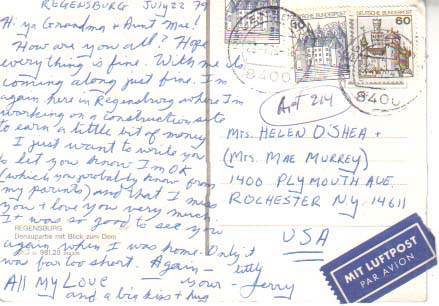 REGENSBURG JULY 22 79
Hi ya Grandma + Aunt Mae!
How are you all? Hope
everything is fine. With me is
coming along just fine. I'm
again here in Regensburg where I'm
working on a construction site
to earn a little bit of money
I just want to write you
to let you know I'm OK
(which you probably know from
my parents) and that I miss
you & love you very much
It was so good to see you
again when I was home. Only it
was far too short. Again -
All My Love
and a big kiss + hug
your - Jerry
REGENSBURG
Donaupartie mit Blick zum Dom
DEUTSCHE BUNDESPOST
60
8400
8400
Apt 214
Mrs. HELEN O'SHEA +
(Mrs. MAE MURREY)
1400 PLYMOUTH AVE.
ROCHESTER N.Y. 14611
USA
MIT LUFTPOST
PAR AVION